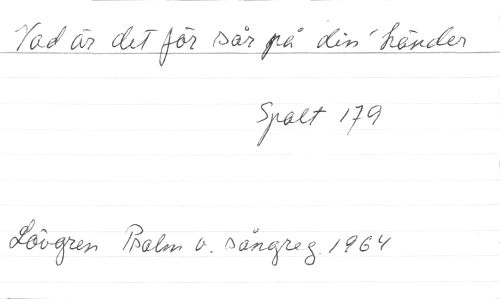 Vad är det för sår på din' händer
Spalt 179
Lövgren Psalm o. sångreg. 1964